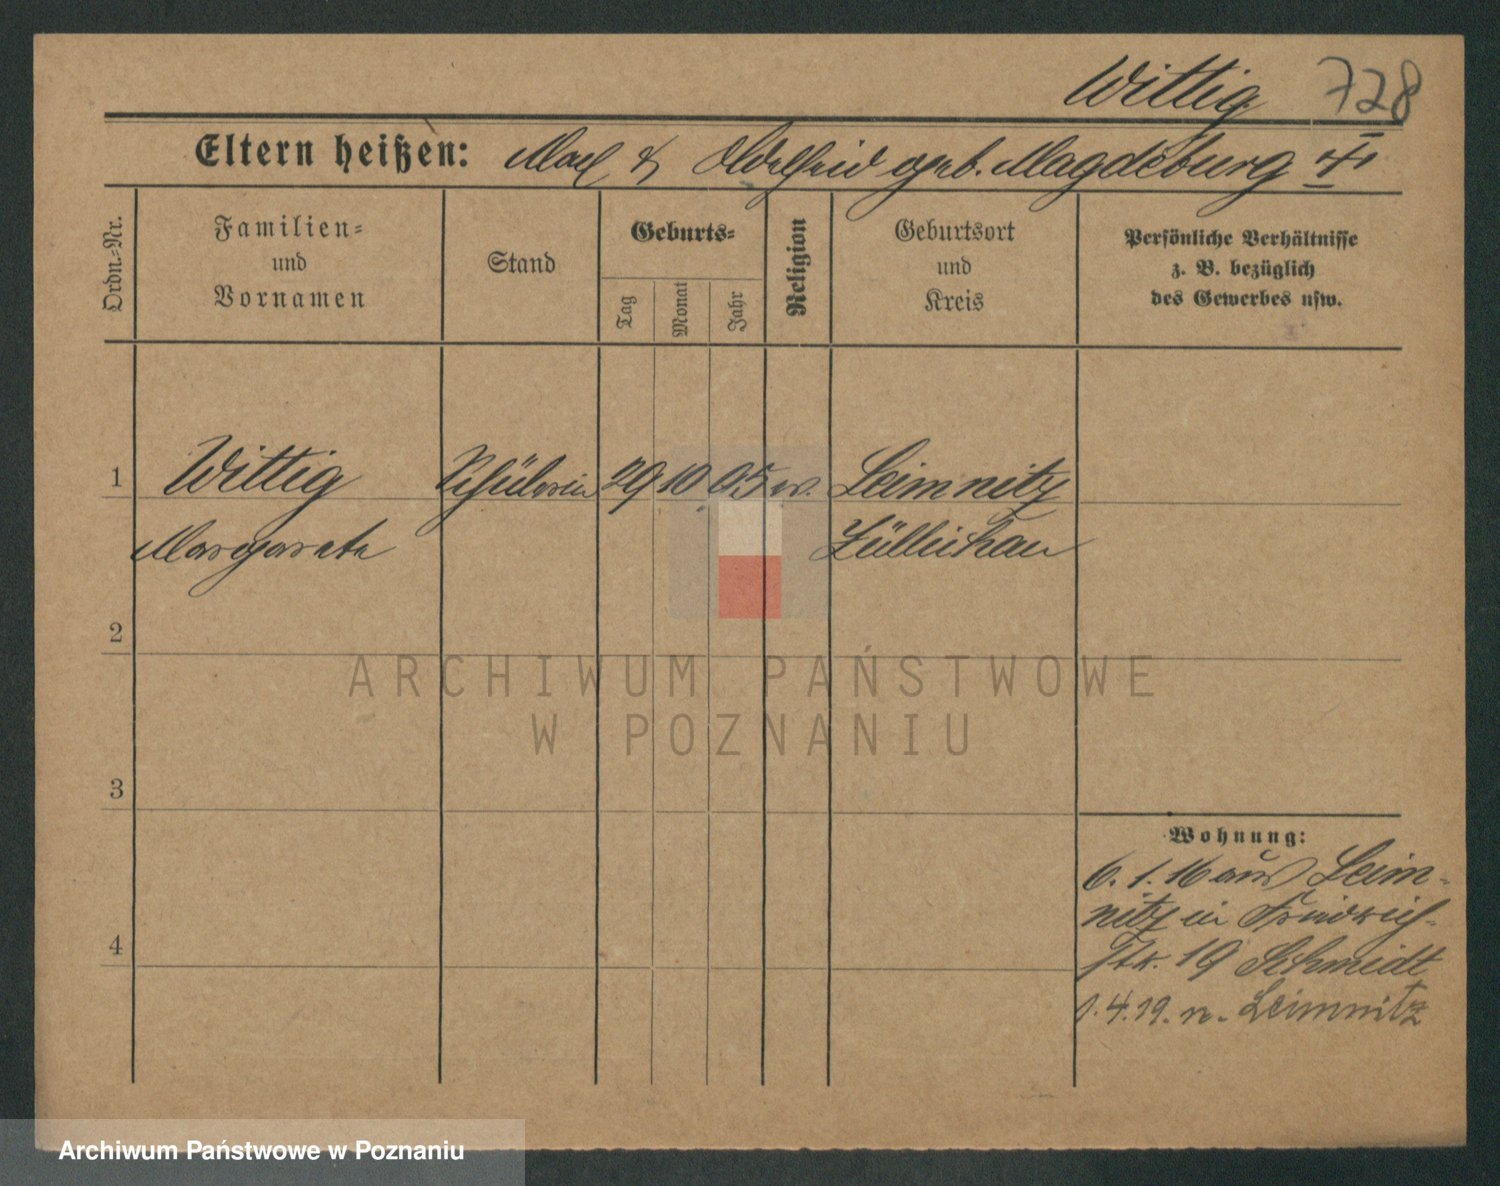 Wittig 728
Eltern heißen: Max & Adelheid geb. Magdeburg
Ordn.-Nr.
Familien-
und
Vornamen
Stand
Geburts-
Tag
Monat
Jahr
Religion
Geburtsort
und
Kreis
Persönliche Verhältnisse
z. B. bezüglich
des Gewerbes usw.
1 Wittig Schülerin 29 10 05 ev. Leimnitz
Margarete Züllichau
2
3
4
Wohnung:
6. 1. 16 aus Leim-
nitz in Friedrich-
str. 19 Schmidt
1. 4. 19. n. Leimnitz
ARCHIWUM PAŃSTWOWE
W POZNANIU
Archiwum Państwowe w Poznaniu